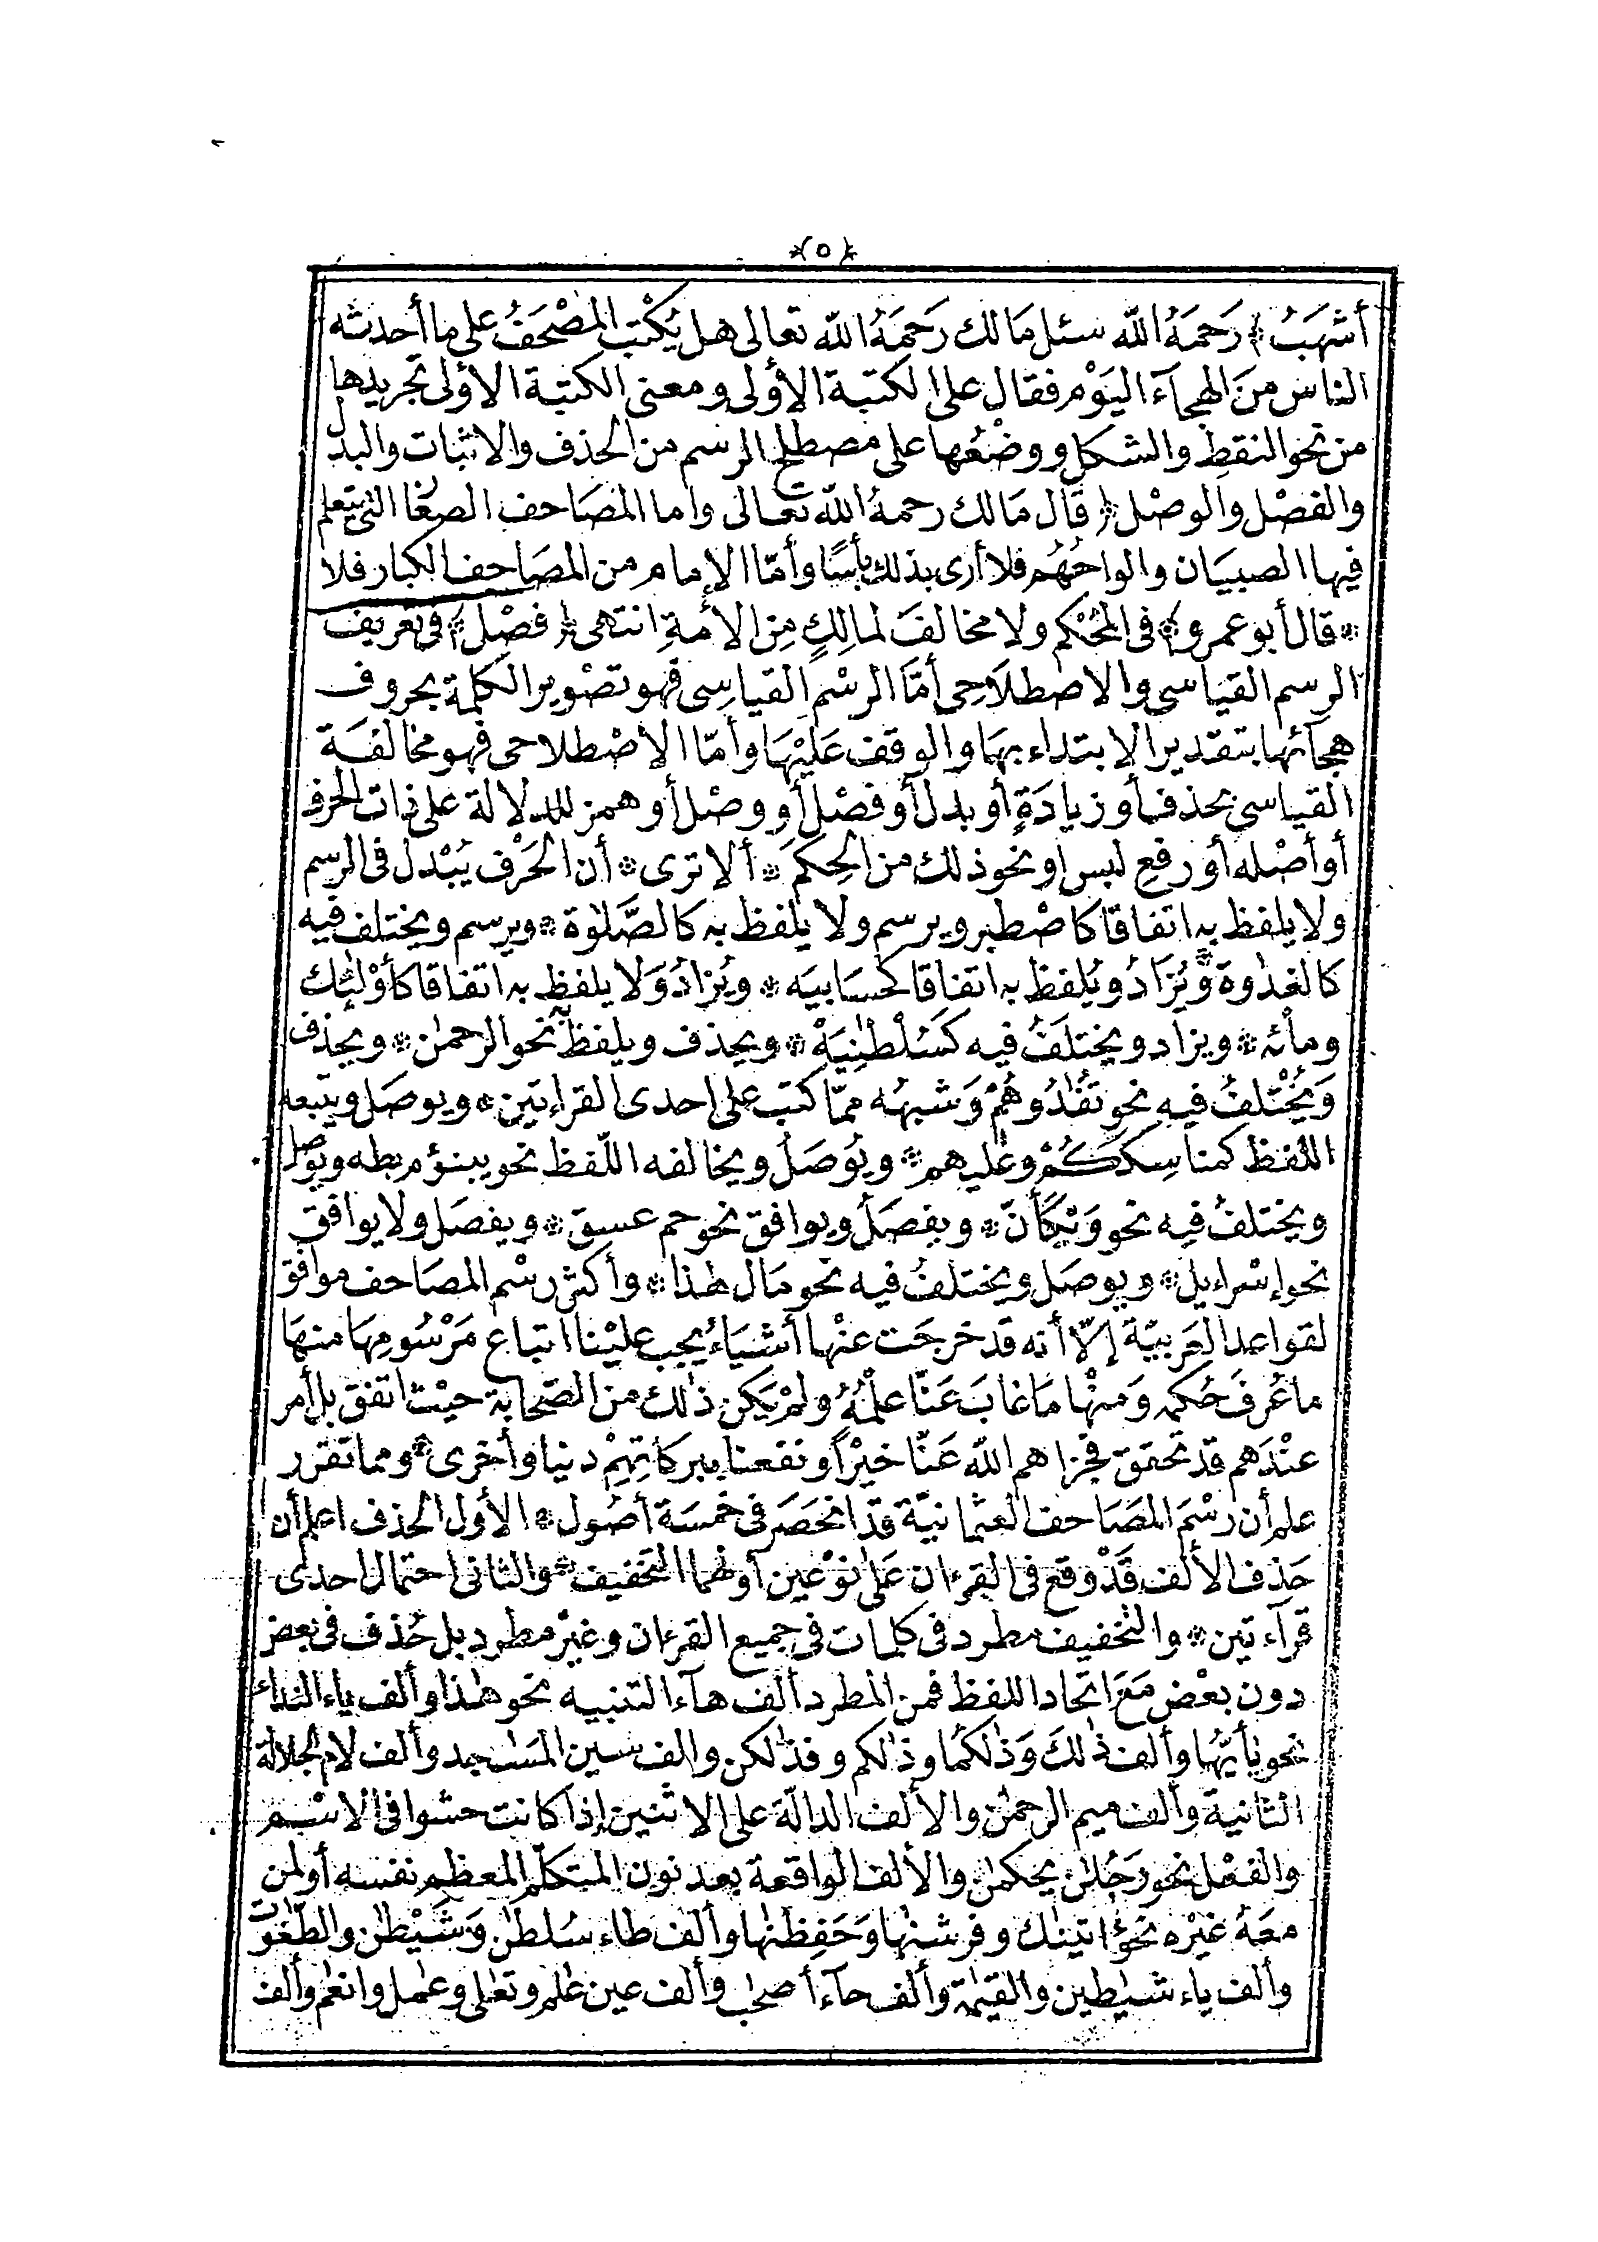 ﴿٥﴾
أشهَبُ ﴾ رَحمَهُ الله سئل مَالك رَحمَهُ الله تعالى هل يُكْتب المصْحَفُ على ما أحدثه
الناس منَ الهجآء اليَوْم فقال على الكتبة الأولى ومعنى الكتبة الأولى تجريدها
من نحو النقطِ والشكل ووضْعُها على مصطلح الرسم من الحذف والاثبات والبدل
والفصْل والوصْل ﴿ قال مَالك رحمهُ الله تعالى وأما المصَاحف الصغار التى يتعلم
فيها الصبيَان والواحُهُم فلا أرى بذلك بأسًا وأمّا الإمام من المصَاحف الكبار فلا
* قال أبو عمرو ﴾ فى المُحْكم ولا مخالفَ لمالِكٍ مِن الأمةِ انتهى ﴿ فصْل ﴾ فى تعريف
الرسم القياسى والاصْطلاَحِى أمّا الرسْم القياسِى فهو تصْوير الكلمة بحروف
هجآئها بتقدير الابتداء بهَا والوقف عَليْهَا وأمّا الاصْطلاحى فهو مخالفَة
القياسى بحذف أو زيادَةٍ أو بدل أو فصْل أو وصْل أو همز للدلالة على ذات الحرف
أو أصْله أو رفع لبس او نحو ذلك من الحِكَم * ألا ترى * أن الحَرْف يُبْدل فى الرسم
ولا يلفظ به اتفاقا كاصْطبر ويرسم ولا يلفظ به كالصَّلوٰة * ويرسم ويختلف فيه
كالغدٰوة * وَيُزَادُ ويُلفظ به اتفاقا كحسَابيَه * ويُزادُ وَلا يلفظ به اتفاقا كأوْلٰئك
ومأئه * ويزاد ويختلَفُ فيه كسُلْطٰنِيَهْ * ويحذف ويلفظ به نحو الرحمٰن * ويحذف
وَيُخْتلفُ فيه نحو تفٰدُوهُمْ وَشبههُ ممّا كتب على احدى القراءتين * ويوصَل ويتبعه
اللفظ كمناسِككُمْ وعليهم * ويُوصَلُ ويخالفه اللّفظ نحو يبنؤم ربطه ويوصل
ويختلفُ فيه نحو وَيْكَأَنَّ * ويفصَلُ ويوافق نحو حم عسق * ويفصَل ولا يوافق
نحو إسْراءيل * ويوصَل ويختلفُ فيه نحو مَال هٰذا * وأكثر رسْم المصَاحف موافق
لقواعد العَربيّة إلاّ أنه قد خرجَت عنْها أشيَاءُ يجب عليْنا اتباع مَرْسُومِهَا منهَا
ما عُرفَ حُكمه وَمنْها مَا غابَ عَنّا علْمُهُ ولمْ يَكن ذٰلك من الصّحابة حيْث اتفق بل أمر
عنْدَهم قدْ تحقق فجزاهم الله عَنّا خيْراً ونفعنا ببركاتِهِمْ دنيا وأخرى * ومما تقرر
علم أن رسْمَ المَصَاحف العثمانيّة قدْ انحَصَر فى خمسَة أصُول * الأول الحذف اعلم أن
حَذف الألف قَدْ وقع فى القرءان عَلىٰ نوْعَين أولهما التخفيف * والثانى احتمال احدى
قرآءتين * والتخفيف مطرد فى كلمات فى جميع القرءان وغيْر مطرد بل حُذف فى بعض
دون بعْض مَعَ اتحاد اللفظ فمن المطرد ألف هآء التنبيه نحو هٰذا وألف ياء الندآء
نحو يٰأيّها وألف ذٰلكَ وَذٰلكمُا وذٰلكم وفذٰلكن والف سين المَسٰجد وألف لام الجلالة
الثانية وألف ميم الرحمٰن والألف الدالّة على الاثنين إذا كانت حشوا فى الاسْم
والفعْل نحو رَجُلٰن يحكمٰن والألف الواقعة بعد نون المتكلّم المعظم نفسه أو لمن
معَهُ غيْره نحو ءاتينٰك وفرشنٰها وَحَفِظنٰها وألف طاء سُلطٰن وَشَيْطٰن والطّٰغوت
وألف ياء شيٰطين والقيٰمة وألف حآء أصحٰب وألف عين عٰلم وتعٰلى وعمٰل وانعٰم وألف